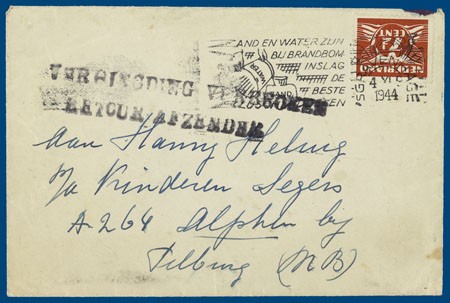 ZAND EN WATER ZIJN
BIJ BRANDBOM
INSLAG
DE
BESTE
WATER
ZAND
7½ CENT
NEDERLAND
4 VI
1944
VERBINDING VERBROKEN
RETOUR AFZENDER
Aan Hanny Helwig
p/a Kinderen Segers
A 264 Alphen by
Tilburg (NB)